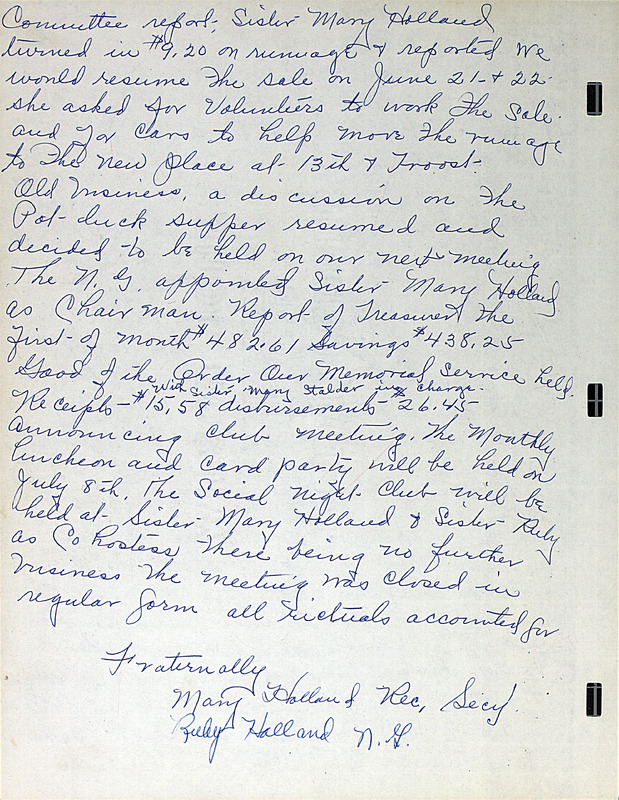 Committee report; Sister Mary Holland
turned in $9.20 on rumage & reported we
would resume the sale on June 21-& 22-
she asked for Voluntiers to work the sale.
and for cars to help move the rumage
to the new place at 13th & Troost.
Old business, a discussion on the
Pot-luck supper resumed and
decided to be held on our next meeting
The N.G. appointed Sister Mary Holland
as Chairman. Report of Treasurer the
first of month $482.61 Savings $438.25
Good of the Order Our Memorial Service held.
with Sister Mary Stalder in charge.
Receipts-$15.58 disbursements-$26.45
announcing club meeting. The Monthly
luncheon and card party will be held on
July 8th, The Social Night Club will be
held at Sister Mary Holland & Sister Ruby
as Co hostess There being no further
business the meeting was closed in
regular form all rictuals accounted for
Fraternally
Mary Holland Rec, Secy.
Ruby Holland N.G.